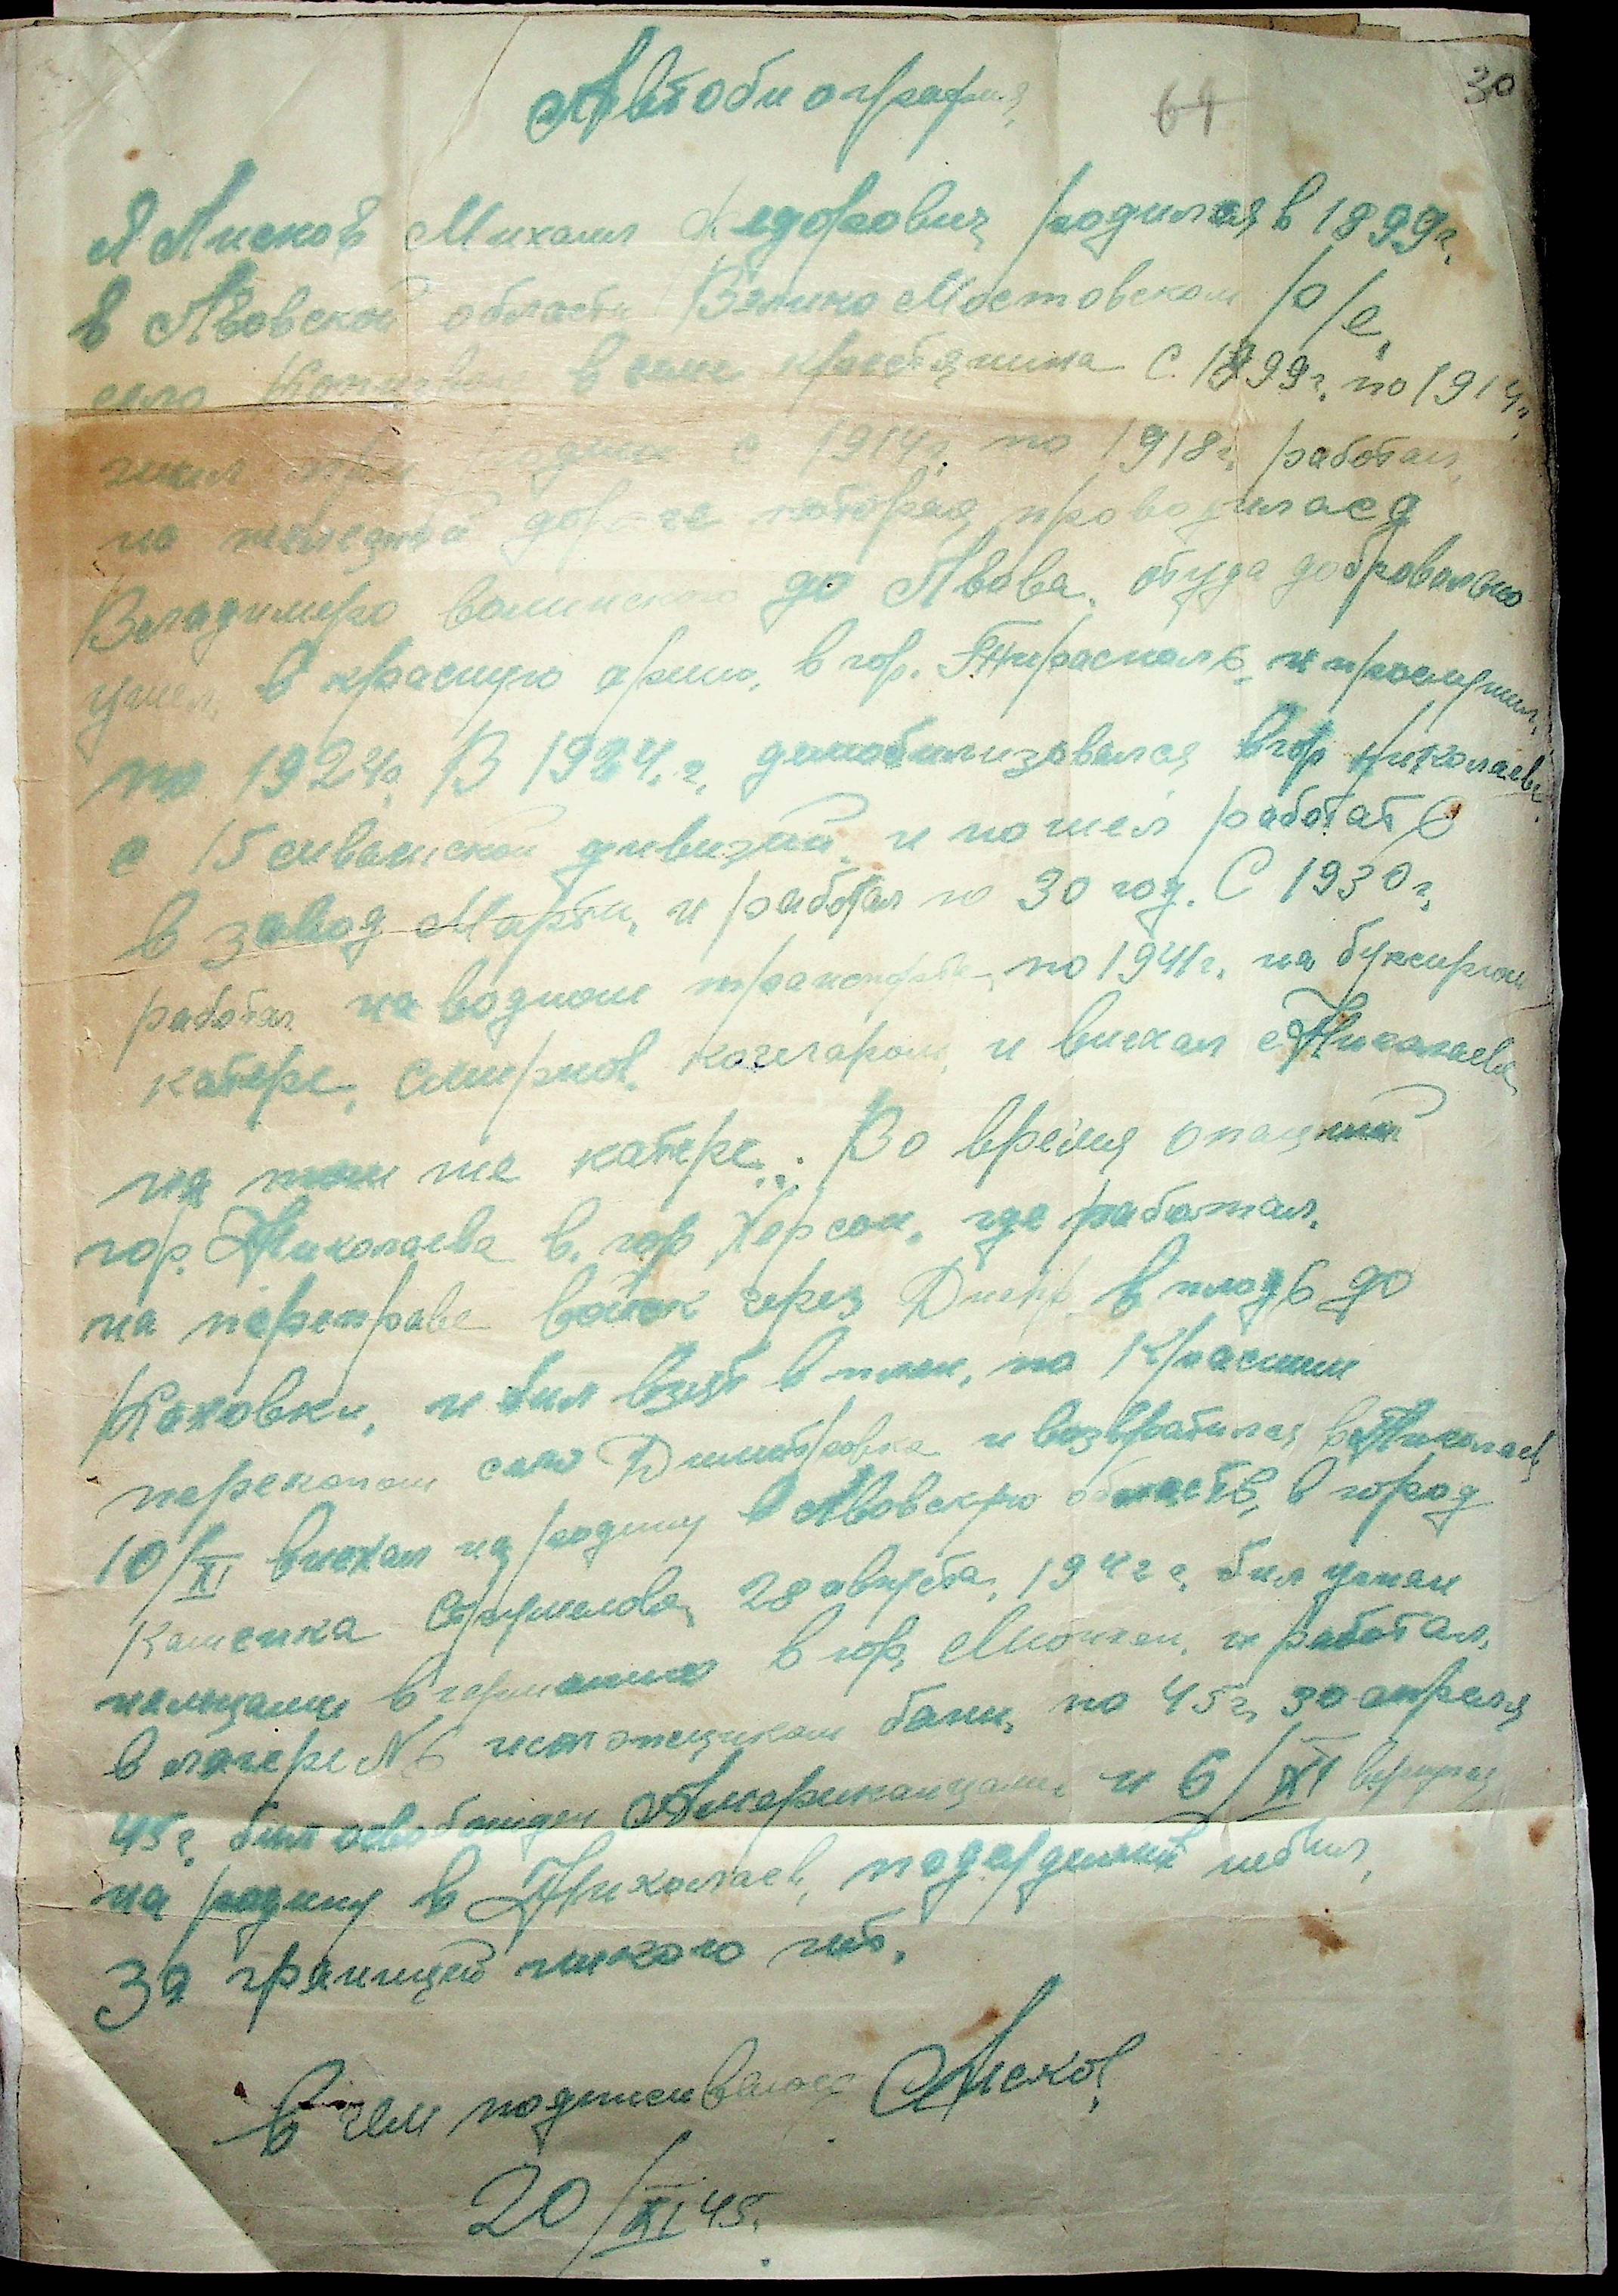 Автобиография
64
30
Я Лисков Михаил Федорович родился в 1899г.
в Львовской области Велико Мостовском р/е,
село в семе крестянина С 1899г. по 1914г.
жил при с 1914г. по 1918г. работал
на железной дор-ге которая проводилася
Владимеро волинского до Львова, отуда добровольно
ушел в красную армию, в гор. Тирасполь, и прослужил,
по 1924г. В 1924.г. демобилизовался в гор николаеве
с 15 сивашской дивизий, и пошел работать
в завод Марти, и работал по 30 год. С 1930г.
работал на водном транспорте, по 1941г. на буксирном
катере, Смирнов, кочегаром, и виехал с Николаева
на том же катере. Во время окупаций
гор. Николаева в. гор Херсон, где работал.
на переправе войск через Днепр в плодь до
Каховки, и бил взят в плен, на Красним
перекопом село Димитровка и возвратился в Николаев
10/XI виехал на родину в Львовскую область, в город
Каменка Струмилова, 28 августа, 1942г. бил угнан
немцами в германию в гор, Мюнхен, и работал,
в лагере № 6 истопщиком бани, по 45г, 30 апреля
45г. бил освобожден Американцами и 6/XI вернулся
на родину в Николаев, небил,
За границей никого нет.
в чем подписиваюсь Лисков,
20/XI 45.